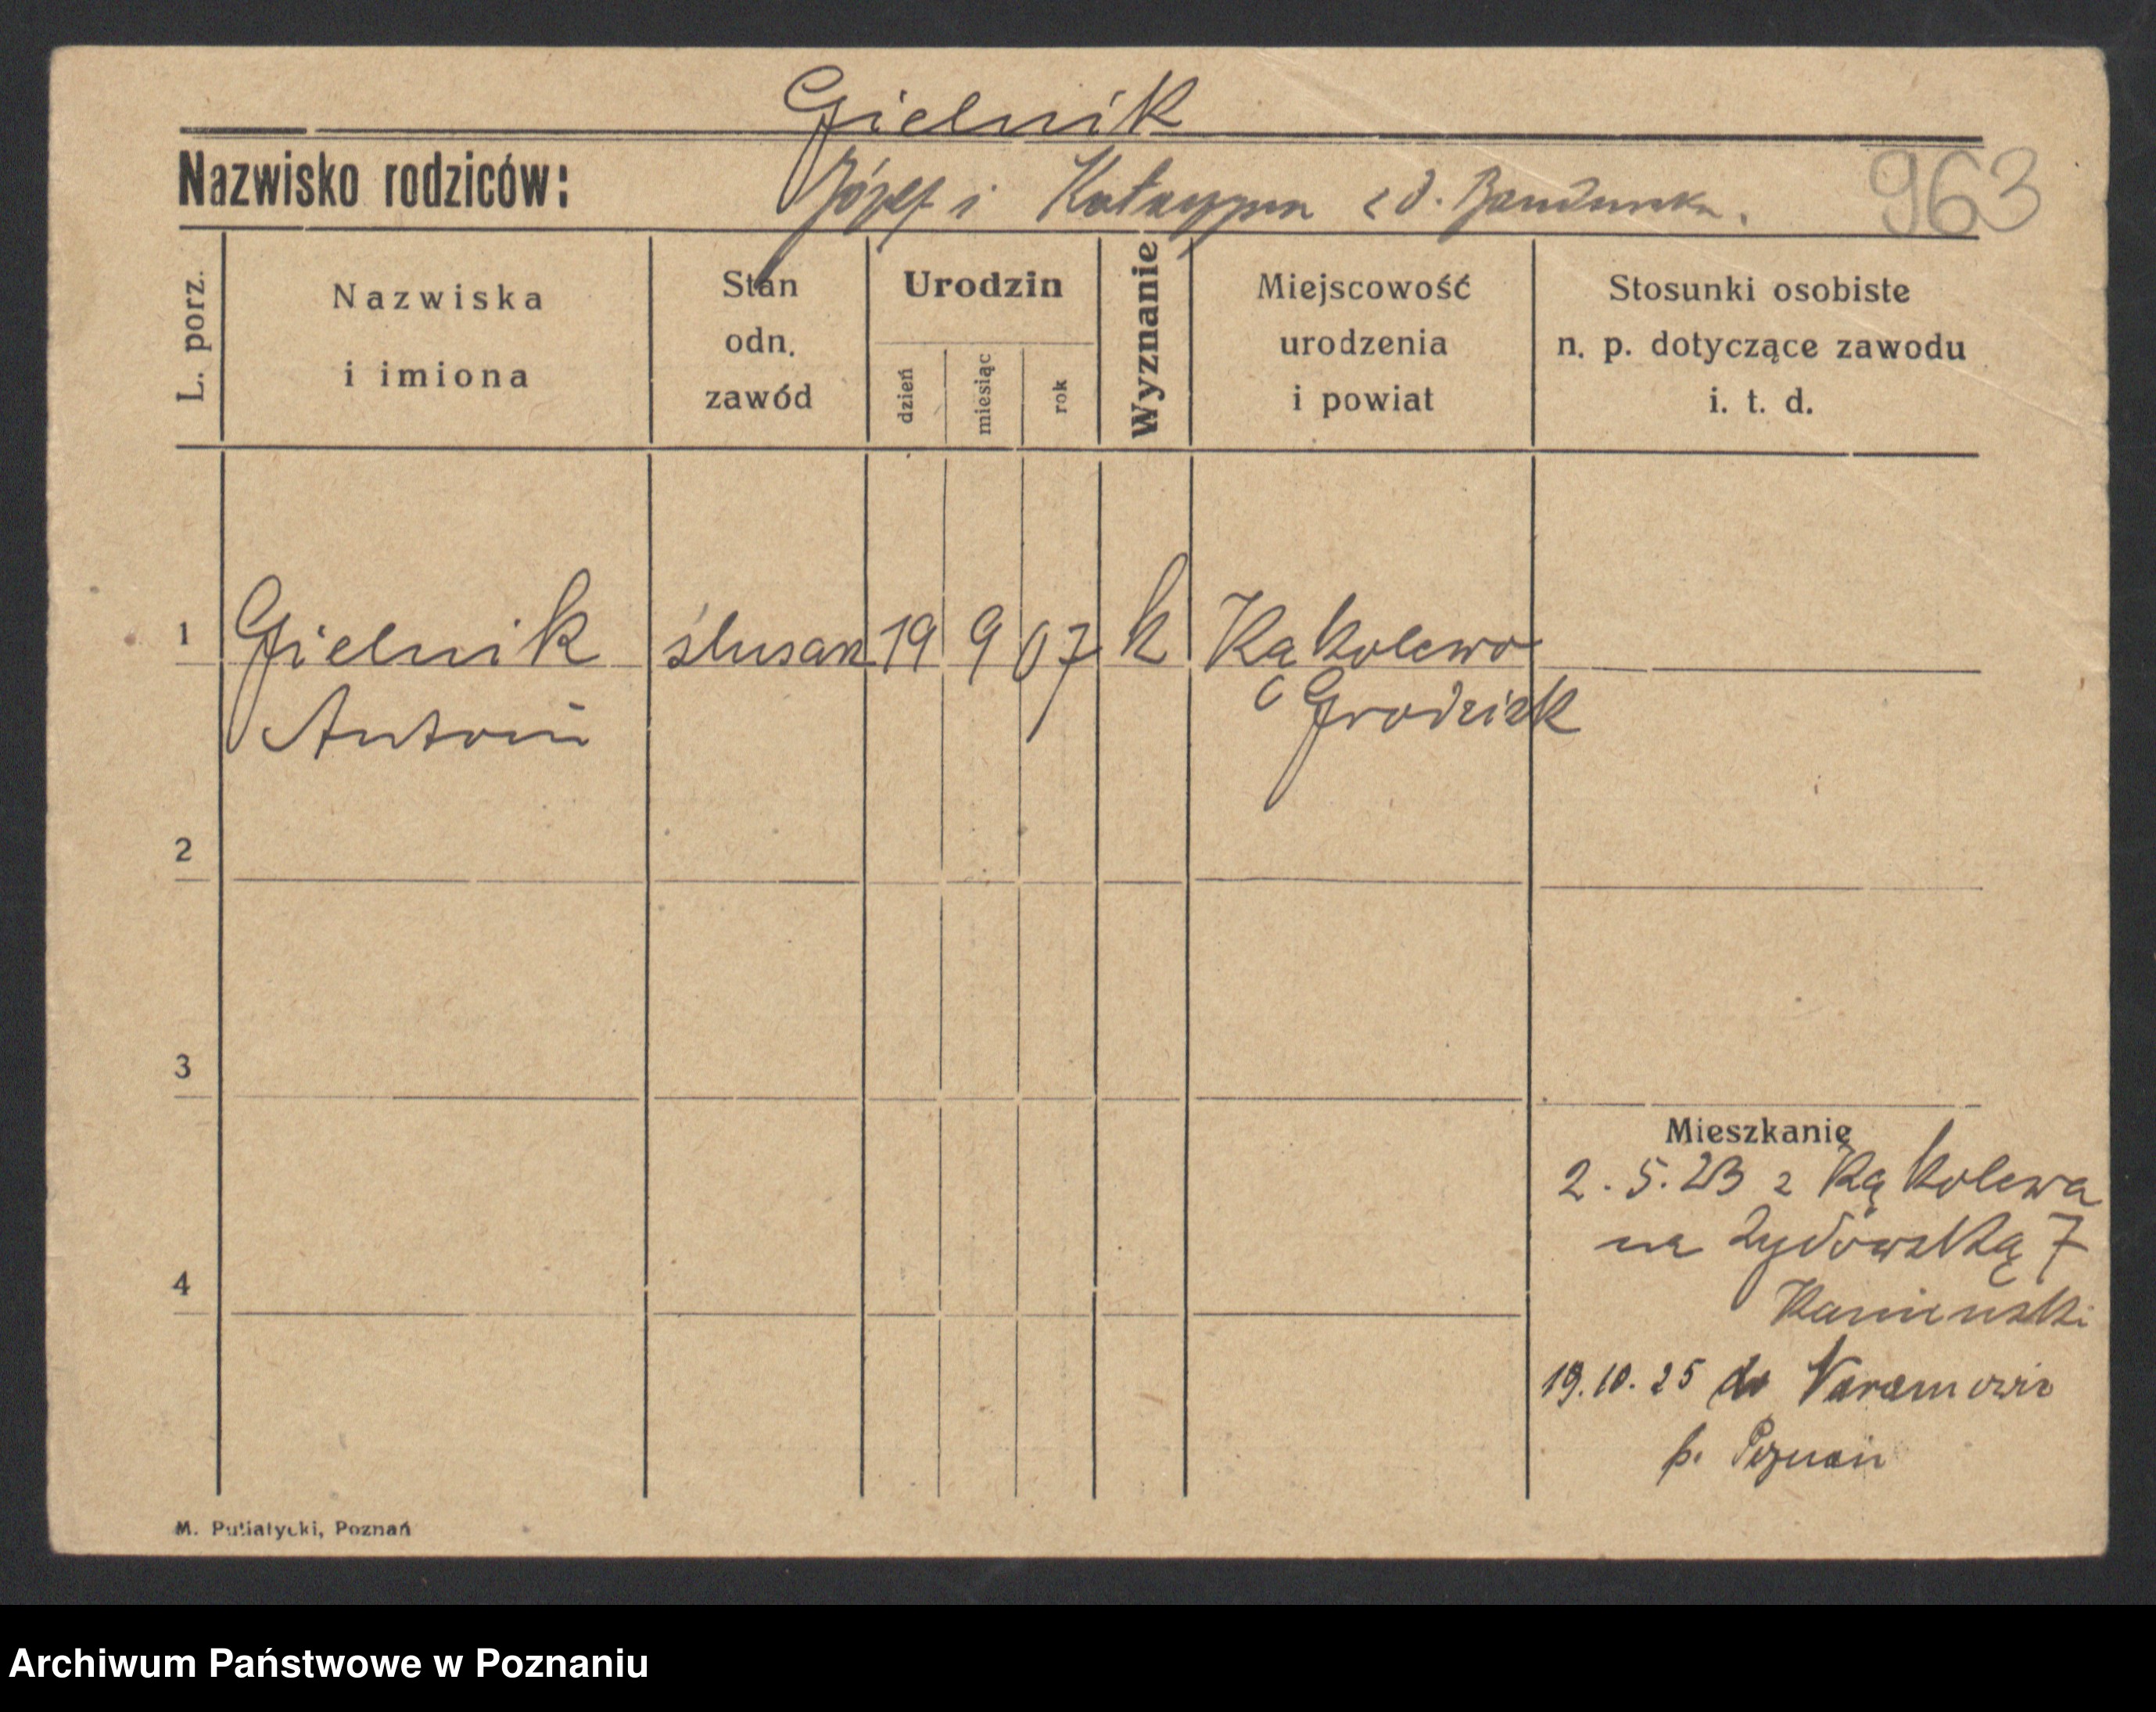 Gielnik
Nazwisko rodziców: Józef i Katarzyna z d. 963
L. porz.
Nazwiska i imiona
Stan odn. zawód
Urodzin
dzień
miesiąc
rok
Wyznanie
Miejscowość urodzenia i powiat
Stosunki osobiste n. p. dotyczące zawodu i. t. d.
1 Gielnik ślusarz 19 9 07 k Kąkolewo
Antoni Grodzisk
2
3
Mieszkanie
2.5.23 z Kąkolewa
na Żydowską 7
4
Kamieński
19.10.25 do
p. Poznań
M. Putiatycki, Poznań
Archiwum Państwowe w Poznaniu